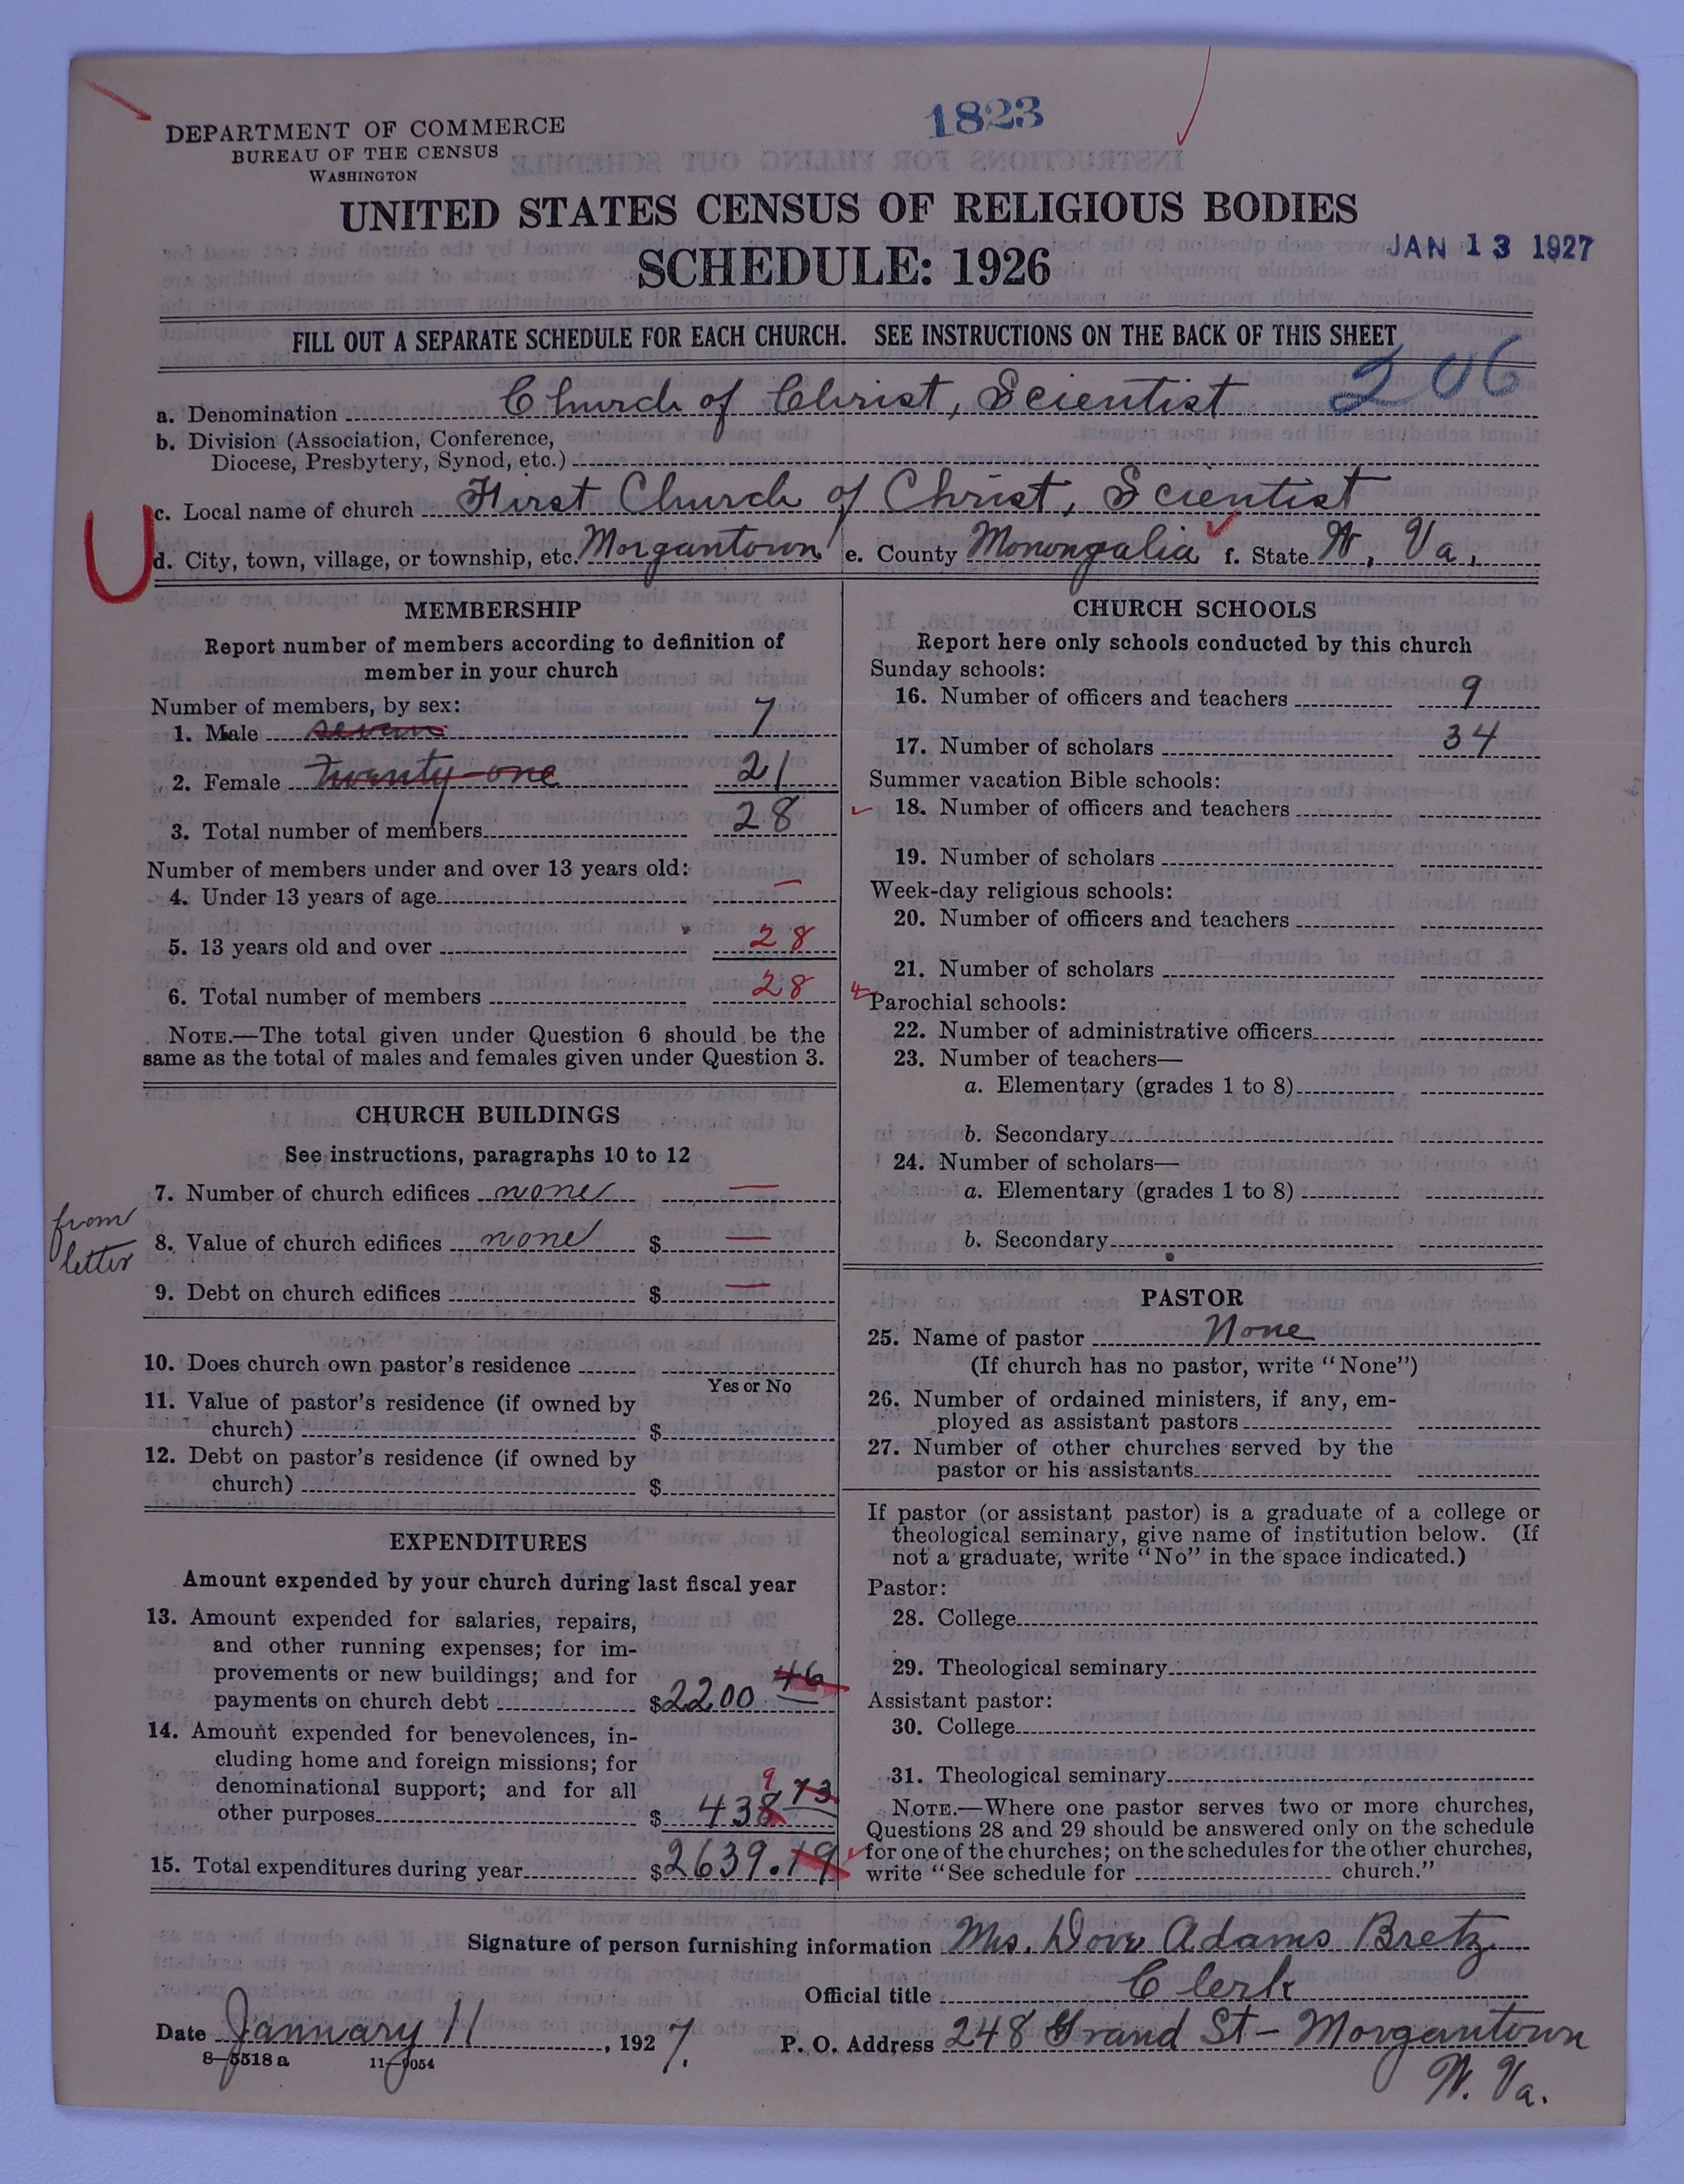 1823
DEPARTMENT OF COMMERCE
BUREAU OF THE CENSUS
WASHINGTON
UNITED STATES CENSUS OF RELIGIOUS BODIES
SCHEDULE: 1926
JAN 13 1927
FILL OUT A SEPARATE SCHEDULE FOR EACH CHURCH. SEE INSTRUCTIONS ON THE BACK OF THIS SHEET
206
a. Denomination Church of Christ, Scientist
b. Division (Association, Conference,
Diocese, Presbytery, Synod, etc.)
c. Local name of church First Church of Christ, Scientist
d. City, town, village, or township, etc. Morgantown e. County Monongalia f. State W. Va.
MEMBERSHIP
Report number of members according to definition of
member in your church
Number of members, by sex:
1. Male seven 7
2. Female twenty-one 21
3. Total number of members 28
Number of members under and over 13 years old:
4. Under 13 years of age —
5. 13 years old and over 28
6. Total number of members 28
NOTE.—The total given under Question 6 should be the
same as the total of males and females given under Question 3.
CHURCH BUILDINGS
See instructions, paragraphs 10 to 12
from
letter
7. Number of church edifices none —
8. Value of church edifices none $ —
9. Debt on church edifices $ —
10. Does church own pastor's residence
Yes or No
11. Value of pastor's residence (if owned by
church) $
12. Debt on pastor's residence (if owned by
church) $
EXPENDITURES
Amount expended by your church during last fiscal year
13. Amount expended for salaries, repairs,
and other running expenses; for im-
provements or new buildings; and for
payments on church debt $2200 46
14. Amount expended for benevolences, in-
cluding home and foreign missions; for
denominational support; and for all
9
other purposes $ 438 73
15. Total expenditures during year $2639.19
CHURCH SCHOOLS
Report here only schools conducted by this church
Sunday schools:
16. Number of officers and teachers 9
17. Number of scholars 34
Summer vacation Bible schools:
18. Number of officers and teachers
19. Number of scholars
Week-day religious schools:
20. Number of officers and teachers
21. Number of scholars
Parochial schools:
22. Number of administrative officers
23. Number of teachers—
a. Elementary (grades 1 to 8)
b. Secondary
24. Number of scholars—
a. Elementary (grades 1 to 8)
b. Secondary
PASTOR
25. Name of pastor None
(If church has no pastor, write "None")
26. Number of ordained ministers, if any, em-
ployed as assistant pastors
27. Number of other churches served by the
pastor or his assistants
If pastor (or assistant pastor) is a graduate of a college or
theological seminary, give name of institution below. (If
not a graduate, write "No" in the space indicated.)
Pastor:
28. College
29. Theological seminary
Assistant pastor:
30. College
31. Theological seminary
NOTE.—Where one pastor serves two or more churches,
Questions 28 and 29 should be answered only on the schedule
for one of the churches; on the schedules for the other churches,
write "See schedule for church."
Signature of person furnishing information Mrs. Dove Adams Bretz
Official title Clerk
Date January 11, 1927. P. O. Address 248 Grand St - Morgantown
W. Va.
8-5518 a 11-9054